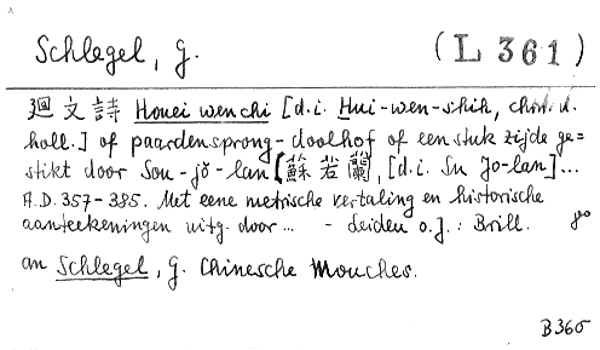 Schlegel, G. (L 361)
廻文詩 Houei wen chi [d.i. Hui-wen-shih, chin. u.
holl.] of paardensprong-doolhof of een stuk zijde ge=
stikt door Sou-jŏ-lan [蘇若蘭, [d.i. Su Jo-lan]...
A.D. 357-385. Met eene metrische vertaling en historische
aanteekeningen uitg. door ... - Leiden o.J.: Brill. 8°
an Schlegel, G. Chinesche Mouches.
B365